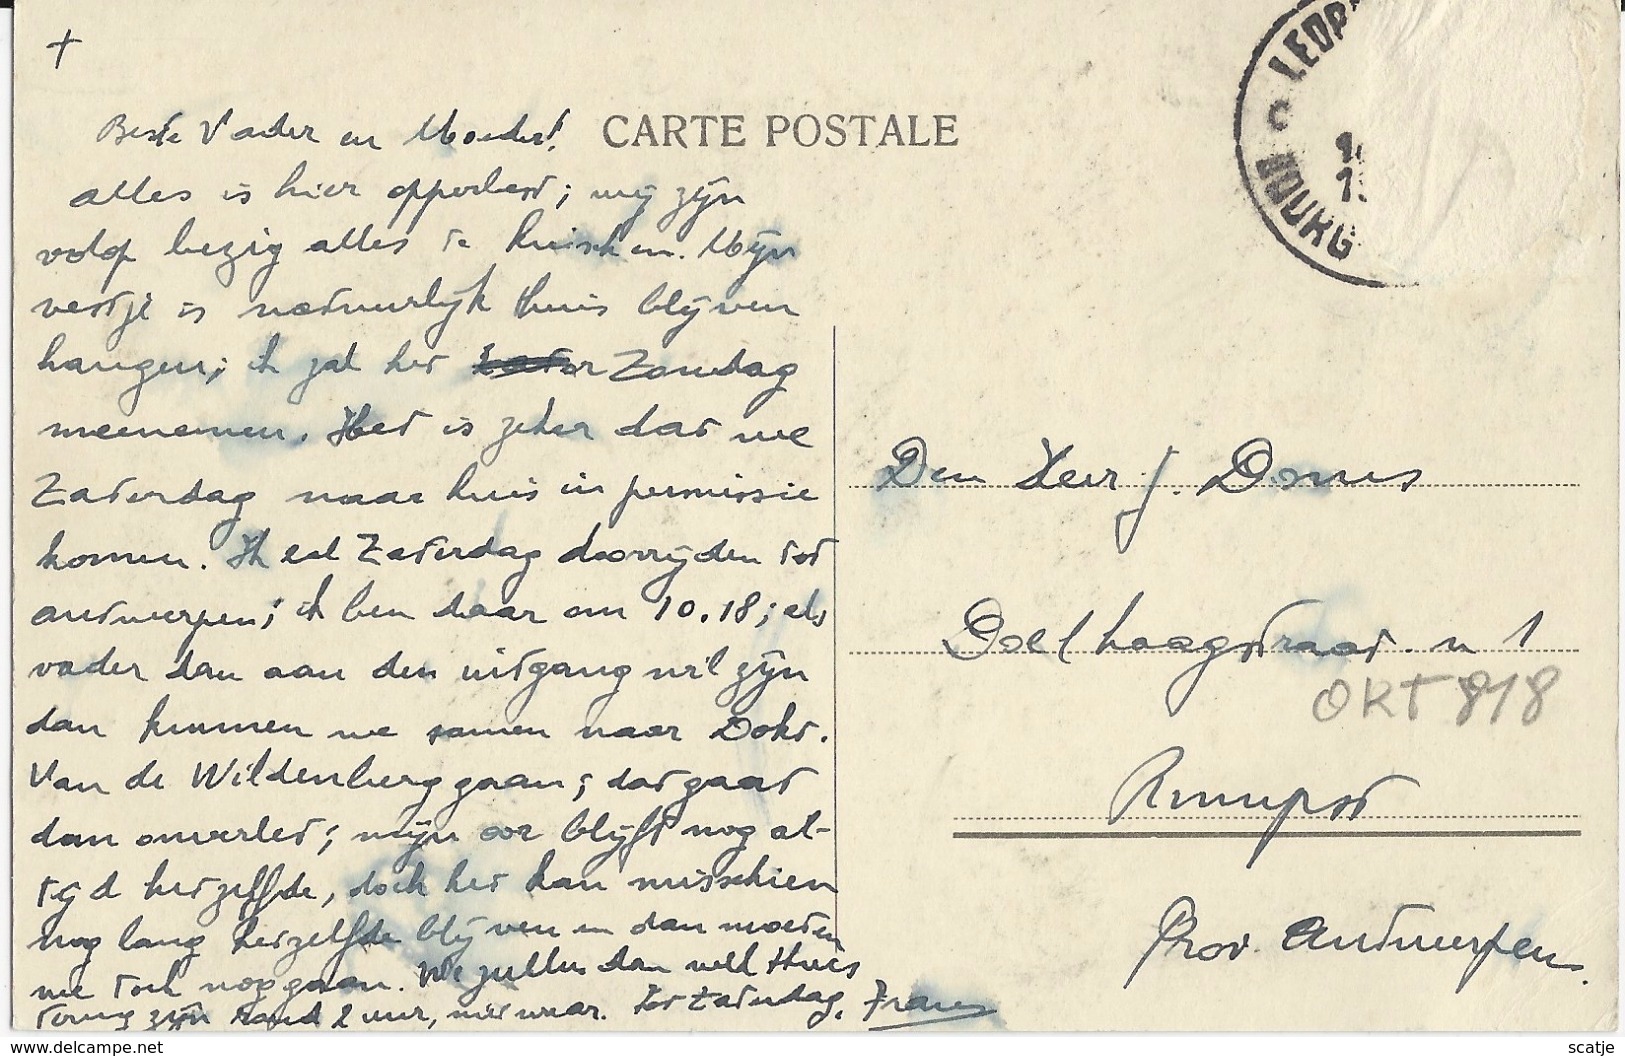 +
Beste Vader en Moeder!
CARTE POSTALE
alles is hier opperbest; wij zijn
volop bezig alles te kuischen. Mijn
vestje is natuurlijk thuis blijven
hangen; ik zal het Zondag
meenemen. Het is zeker dat we
Zaterdag naar huis in permissie
komen. Ik zal Zaterdag doorrijden tot
antwerpen; ik ben daar om 10.18; als
vader dan aan den uitgang wil zijn
dan kunnen we samen naar Dokt.
Van de Wildenberg gaan; dat gaat
dan onverlet; mijn oor blijft nog al-
tijd hetzelfde, doch het kan misschien
nog lang hetzelfde blijven en dan moeten
we toch nog gaan. We zullen dan wel thuis
terug zijn rond 2 uur, niet waar. Tot Zaterdag. Frans
LEOP
BOURG
Den Heer J. Domis
Doelhaagstraat. n 1
OKT 818
Rumpst
Prov. Antwerpen.
www.delcampe.net
scatje